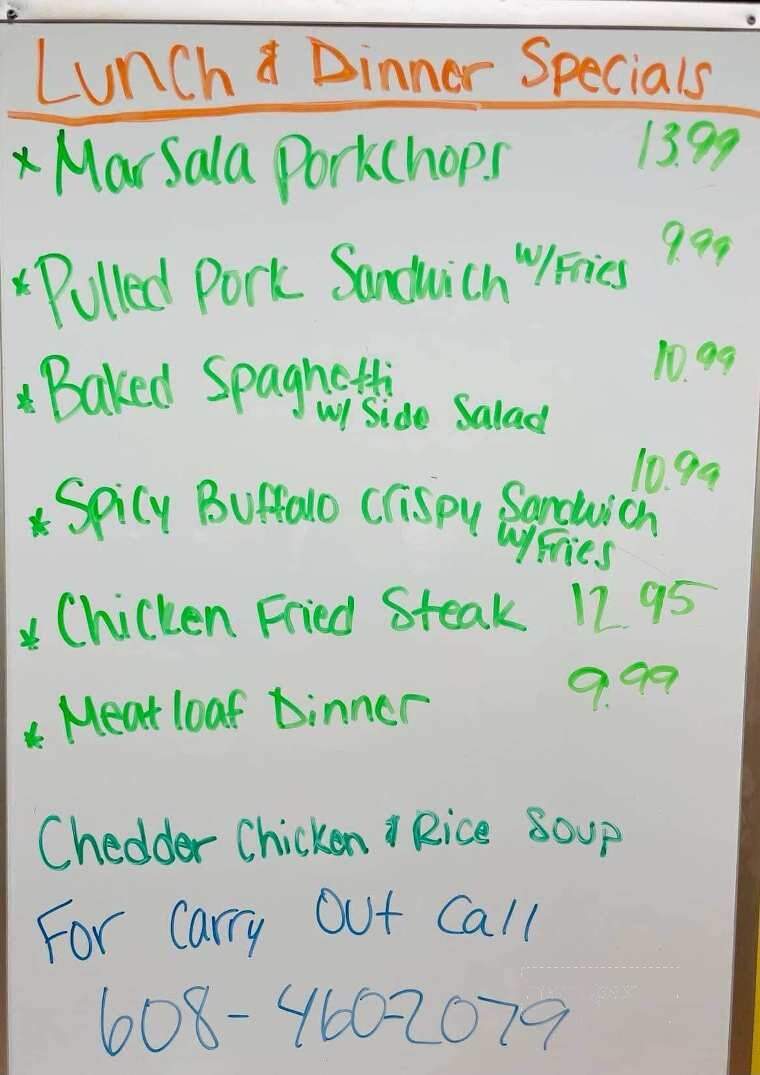 Lunch & Dinner Specials
* Marsala Porkchops 13.99
* Pulled Pork Sandwich w/Fries 9.99
* Baked Spaghetti 10.99
w/ Side Salad
* Spicy Buffalo Crispy Sandwich 10.99
w/Fries
* Chicken Fried Steak 12.95
* Meatloaf Dinner 9.99
Chedder Chicken & Rice Soup
For Carry Out Call
608-460-2079